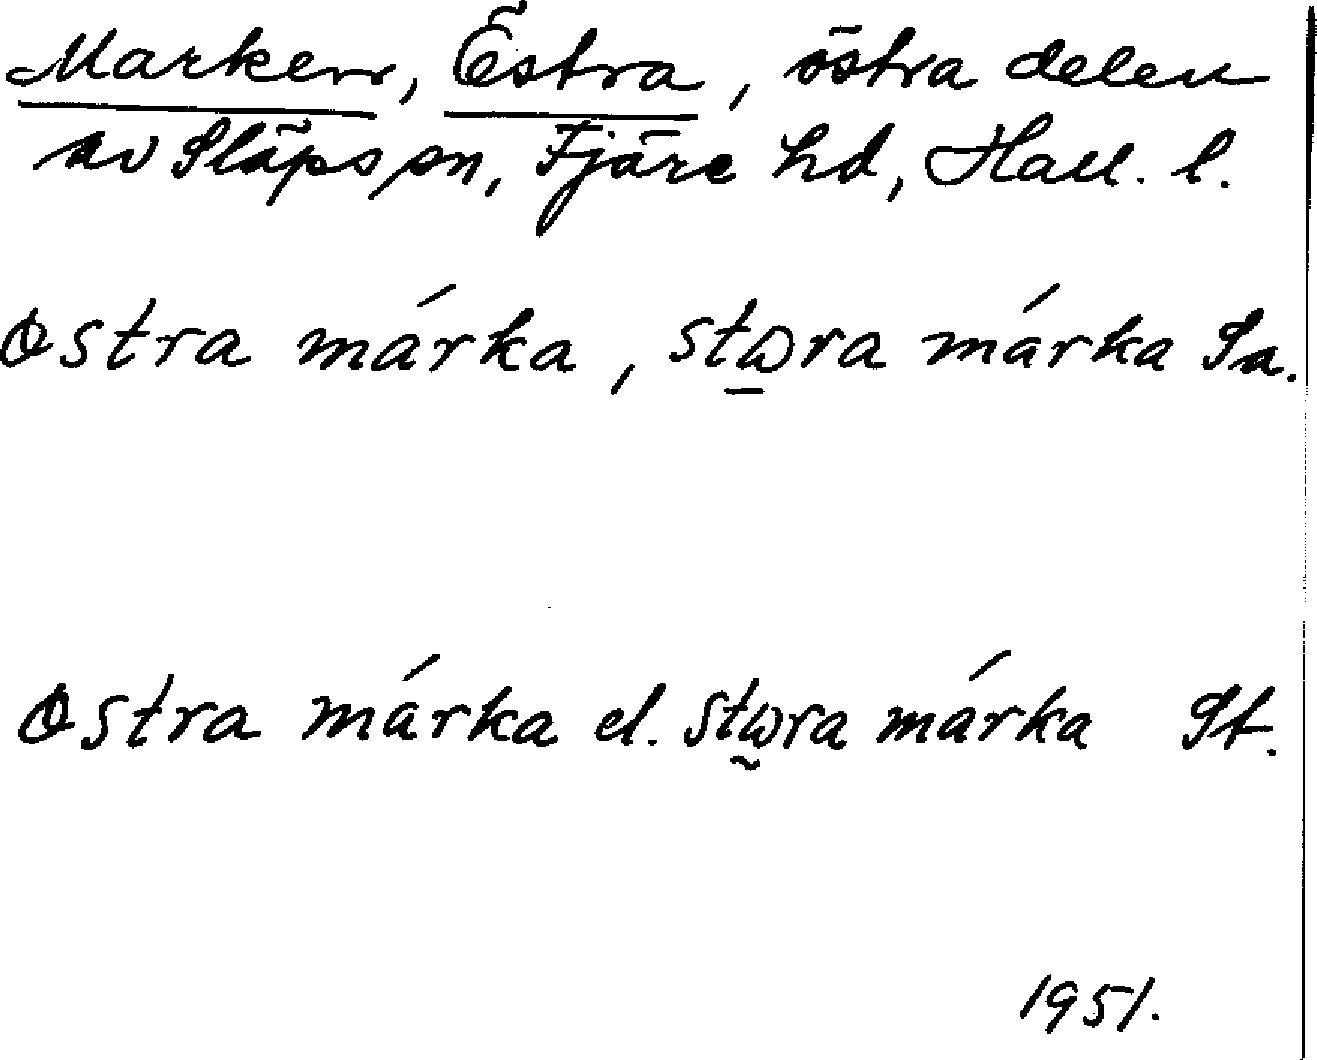 Marken, Östra, östra delen
av Släps sn, Fjäre hd, Hall. l.
østra márka, stω̱ra márka Sa.
østra márka el. stω̰ra márka St.
1951.